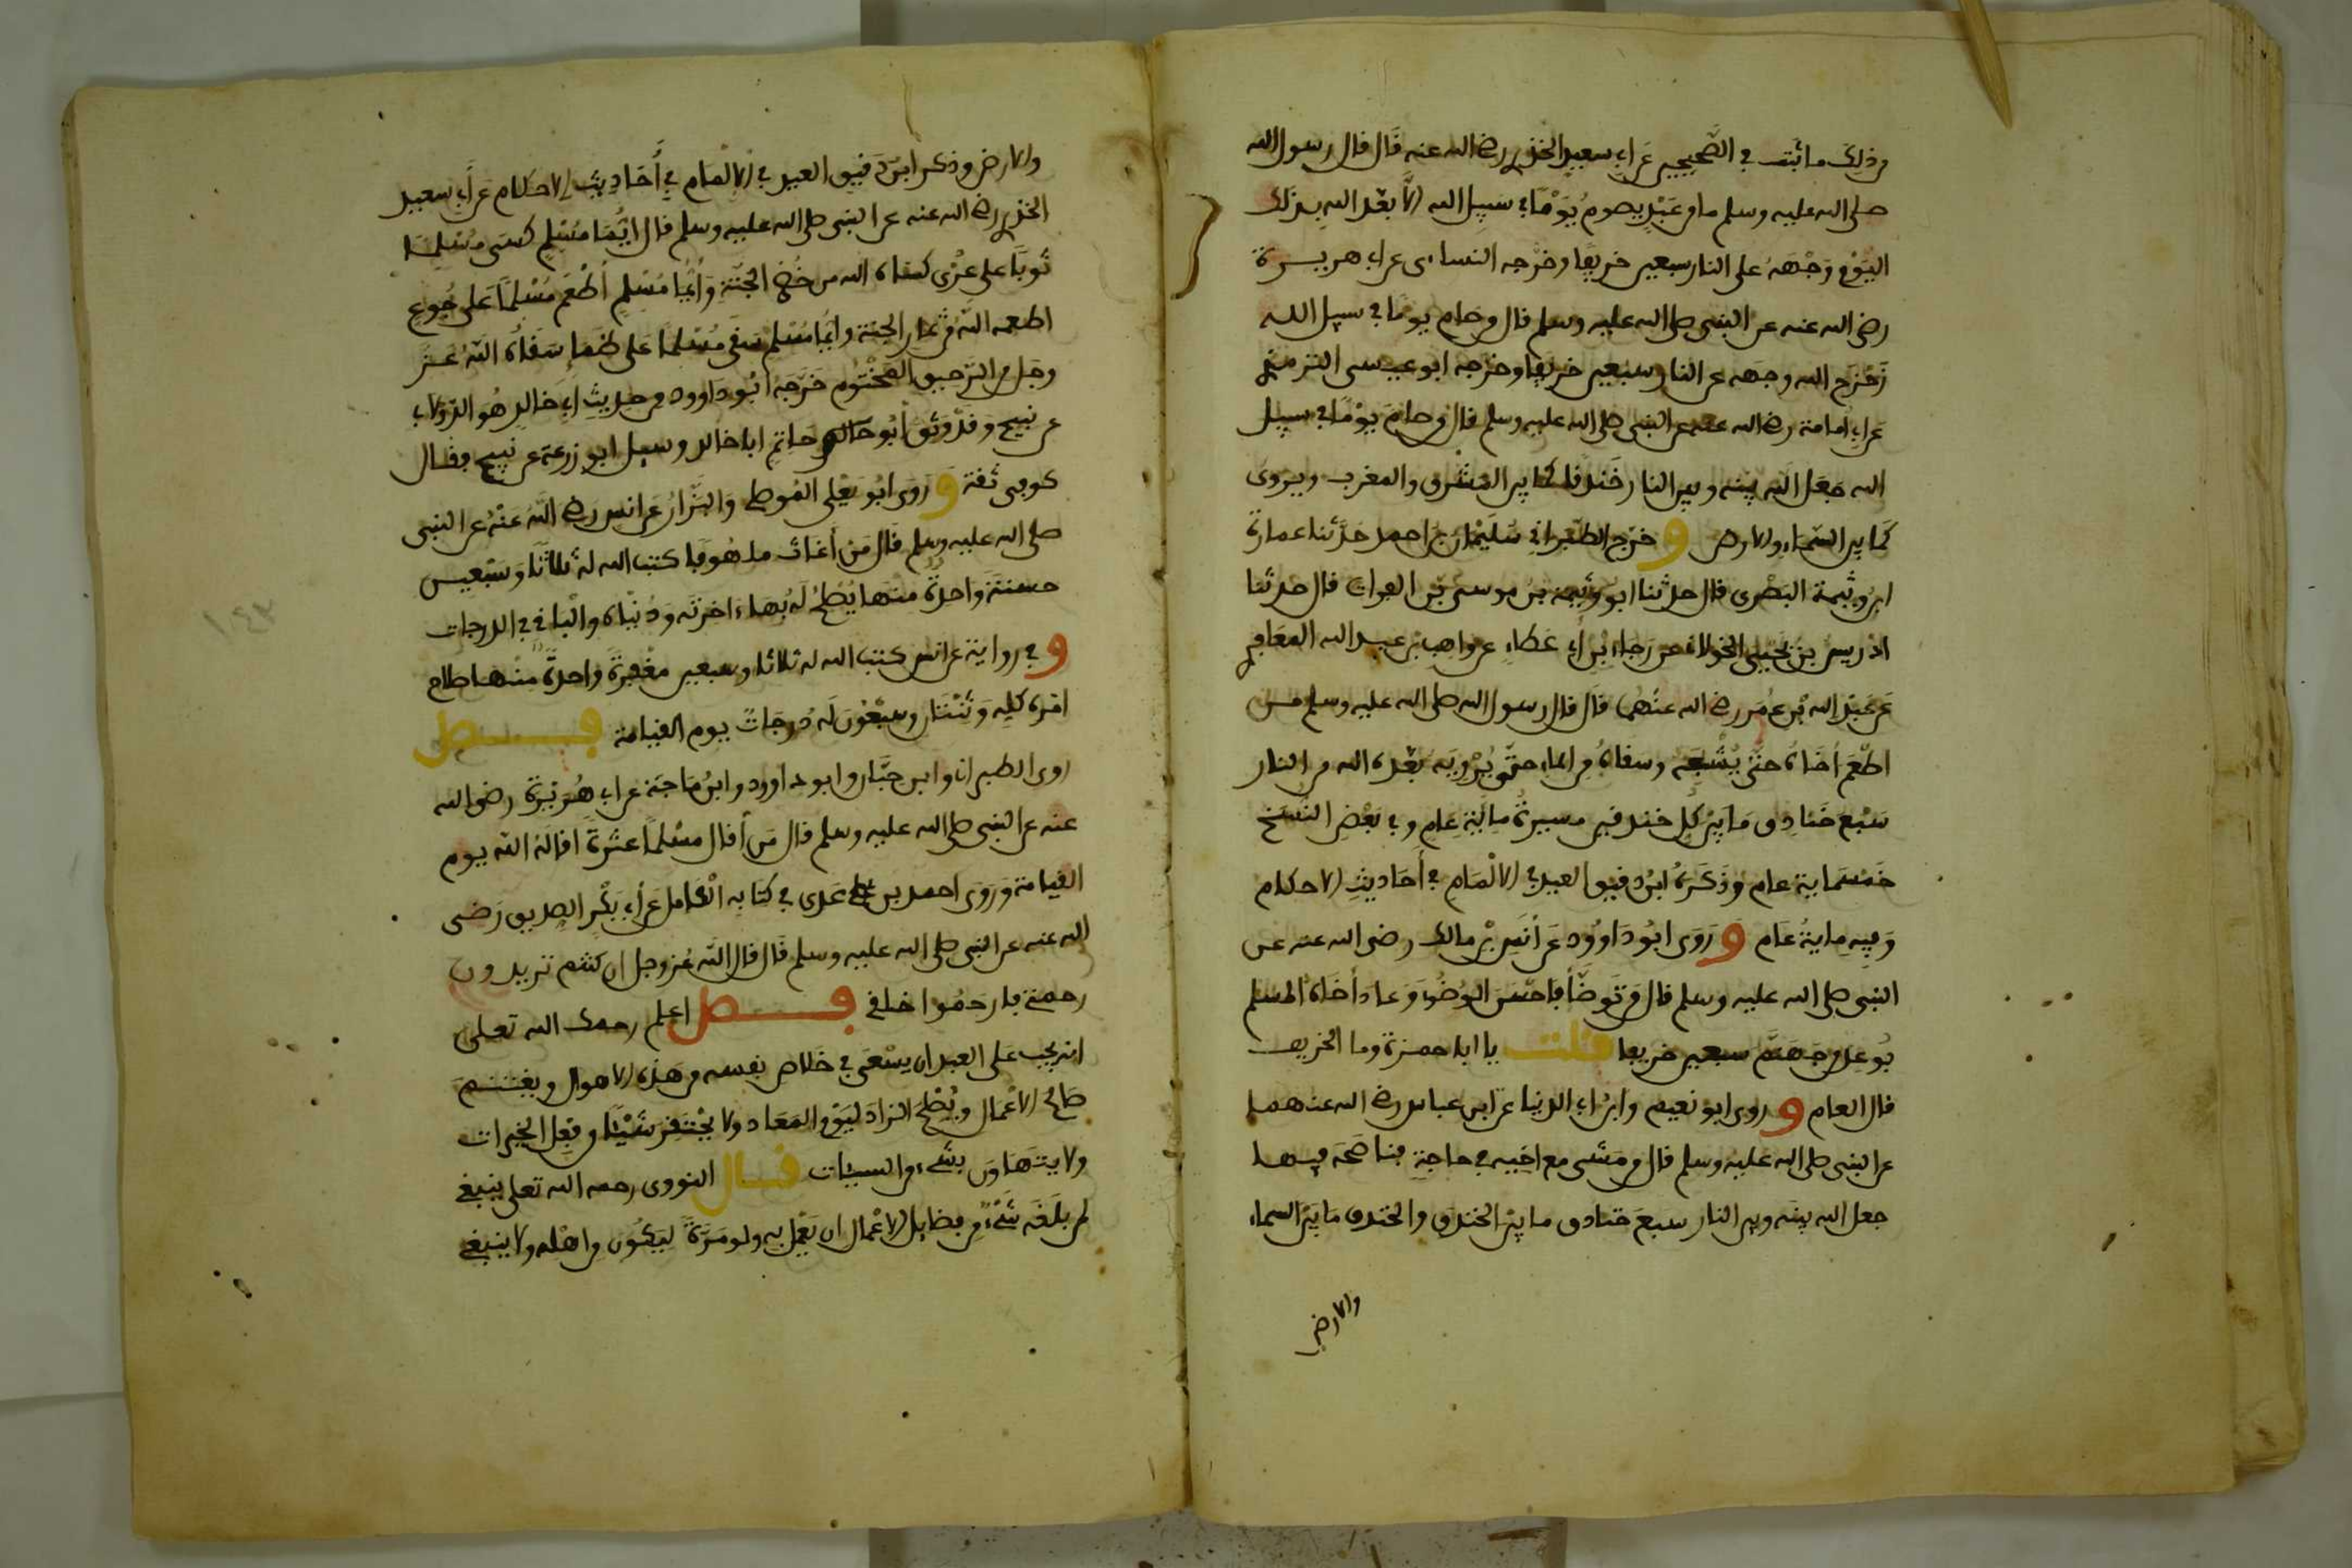 من ذلك ما ثبت في الصَّحيحين عَن أبي سعيد الخدري رضي الله عنه قَال قال رسول الله
صلى الله عليه وسلم ما من عَبْدٍ يصومُ يَوْمًا في سبيل الله إلاَّ بعّد الله بذلك
اليَوْمِ وَجْهَهُ على النار سبعين خريفًا وخرّجه النسائى عن أبي هريرة
رضي الله عنه عن النبي صلى الله عليه وسلم قال من صام يومًا في سبيل الله
زَحْزح الله وجهه عن النار سبعين خريفا وخرجه ابو عيسى الترمذي
عن أبي أمامة رضي الله عنه عن النبي صلى الله عليه وسلم قال من صامَ يوْمًا في سبيل
الله جَعَل اللهُ بينه وبين النار خَندقا كما بين المَشرق والمغرب ويروى
كَما بين السّماء والأرض و خرّج الطّبراني سُلَيْمان بن احمد حَدَّثنا عمارة
ابن وَثِيمة البَصْرى قال حدثنا ابو وثيمة بن موسى بن الفرات قال حدثنا
اذريس بن يَحْيى الخولاني عن رَجاء بْن أبي عَطاء عن واهب بن عبد الله المعَافِري
عَن عَبْدِ الله بْن عُمَر رضي الله عنهُما قال قال رسول الله صلى الله عليه وسلم من
اطْعَم أخَاهُ حتّى يُشْبِعَه وسقاهُ من الماء حتّى يُرْوِيَه بَعَّده الله من النار
سَبْع خَنادِق مَا بَيْن كلِّ خندقين مسيرةُ مِائَةِ عَامٍ وفي بَعْضِ النُّسَخ
خَمْسُماية عام وَذَكَرهُ ابنُ دقيق العيد في الالْمَامِ في أَحَاديثِ الأحكام
وَفيه مِايةُ عَام وَ رَوَى ابُو دَاوُود عَن أنَسِ بْن مالك رضي الله عنه عن
النبي صلى الله عليه وسلم قال من تَوضّأ فاحْسَن الوُضُوء وَعَادَ أَخَاهُ المسلم
بُوعِدَ من جَهَنّم سبعين خريفا قلت يا ابا حمزة وما الخريف
قال العام و روى ابو نعيم وابنُ أبي الدنيا عن ابن عباس رضي الله عنهما
عن النبي صلى الله عليه وسلم قال من مَشى مع اخيه في حاجةٍ فناصَحَه فيها
جعل الله بينَه وبين النار سبعَ خنادق ما بيْن الخندَق والخندق مَا بَيْن السماء
والأرض
والأرض وذكر ابن دَقيق العيد في الالمَام في أَحَادِيثِ الأحكام عَن أَبي سعيد
الخدري رضي الله عنه عن النبي صلى الله عليه وسلم قال ايُّمَا مُسْلِمٍ كسَى مُسْلِمًا
ثَوبًا على عُرْى كسَاه الله من خُضْرِ الجَنَّةِ وَأيُّما مُسْلِمٍ أطْعَم مُسْلِمًا عَلى جُوعٍ
اطعمه اللّه من ثمار الجنّة وايُّما مُسْلم سَقَى مُسْلِمًا عَلى ظَمَإٍ سَقَاهُ اللّهُ عَزَّ
وجَل من الرّحيق المَخْتُوم خَرَّجَهُ ابُو دَاوود من حديثِ أبي خَالدٍ هُو الدّولابي
عن نبيح وقدْ وَثق أبُو حَاتم ابا خالد وسيل ابو زرعة عن نبيح فقال
كوفى ثقة وَ رَوَى ابُو يَعْلى المُوصلي وَالبَزّارُ عَن انس رَضي اللّه عَنْهُ عن النبي
صلى الله عليه وسلم قَال مَن أغاثَ ملهُوفا كتب الله له ثلاثًا وَسَبْعين
حسنةً وَاحدةٌ منْها يُصْلحُ لَهُ بهَا ءَاخرتَه وَدُنْيَاه والْبَاقي في الدرجات
و في رواية عن انس كتب الله له ثلاثا وسبعين مغْفِرَةً واحدةٌ منها صلاح
امْره كلِّهِ وَثنْتَان وسَبْعُونَ لَهُ دَرجَاتٌ يوم القيامة فصل
روى الطبراني وابن حبّان وابو داوود وابنُ مَاجَة عن أبي هُرَيْرَة رضي الله
عنه عن النبي صلى الله عليه وسلم قال مَن أقال مسْلمًا عثْرَةً اقالَهُ اللّه يوم
القيامة وَرَوَى احمد بن عَدى في كتَابِه الْكامل عَن أبي بَكْرٍ الصِديق رَضى
الله عنه عن النبي صلى الله عليه وسلم قَال قال اللّه عَزّوجل إن كنتم تريدون
رحمتي فارحَمُوا خلقي فصل اعلم رحمك الله تعلى
انه يجب على العبد ان يسْعَى في خَلاص نفسه من هَذه الأهوال ويغتنم
صَالح الأعْمال ويُصْلحَ الزادَ ليَوْمِ المعَاد ولا يَحْتَقِرَ شَيْئًا من فعْل الخيرات
ولا يتهَاوَن بشَيْء من السيئات قال النووى رحمه الله تعلى ينبغي
لمن بَلَغَه شَيْءٌ من فضايل الأعْمال ان يَعْمل به ولو مَرّةً ليَكُون من اهْله ولا ينبغي